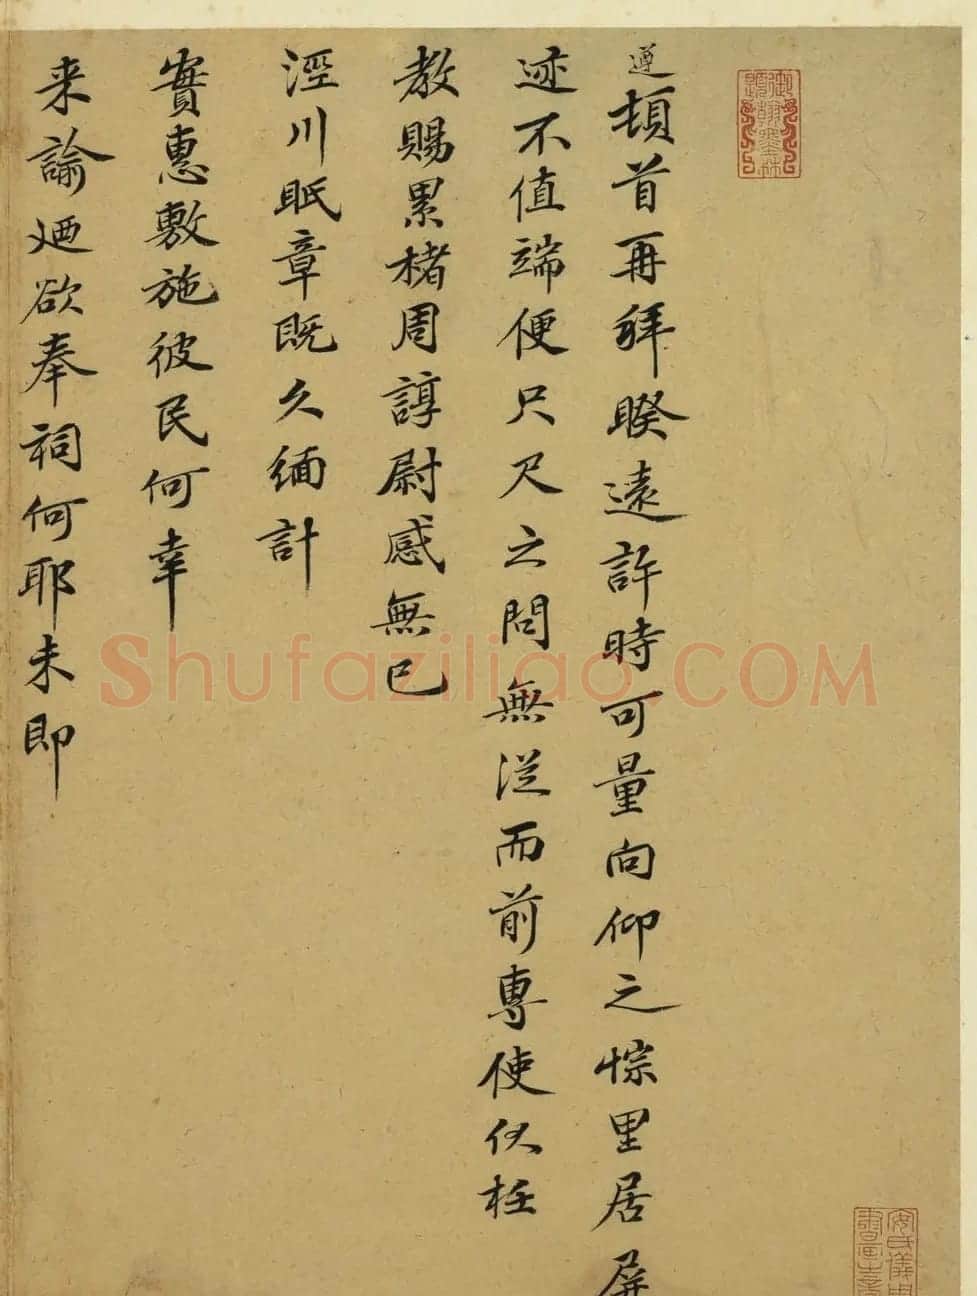 遵頓首再拜睽遠許時可量向仰之悰里居屏
迹不值端便只尺之問無從而前專使伏枉
教賜累楮周諄尉感無已
涇川眂章既久緬計
實惠敷施彼民何幸
来諭廼欲奉祠何耶未即
Shufaziliao.COM